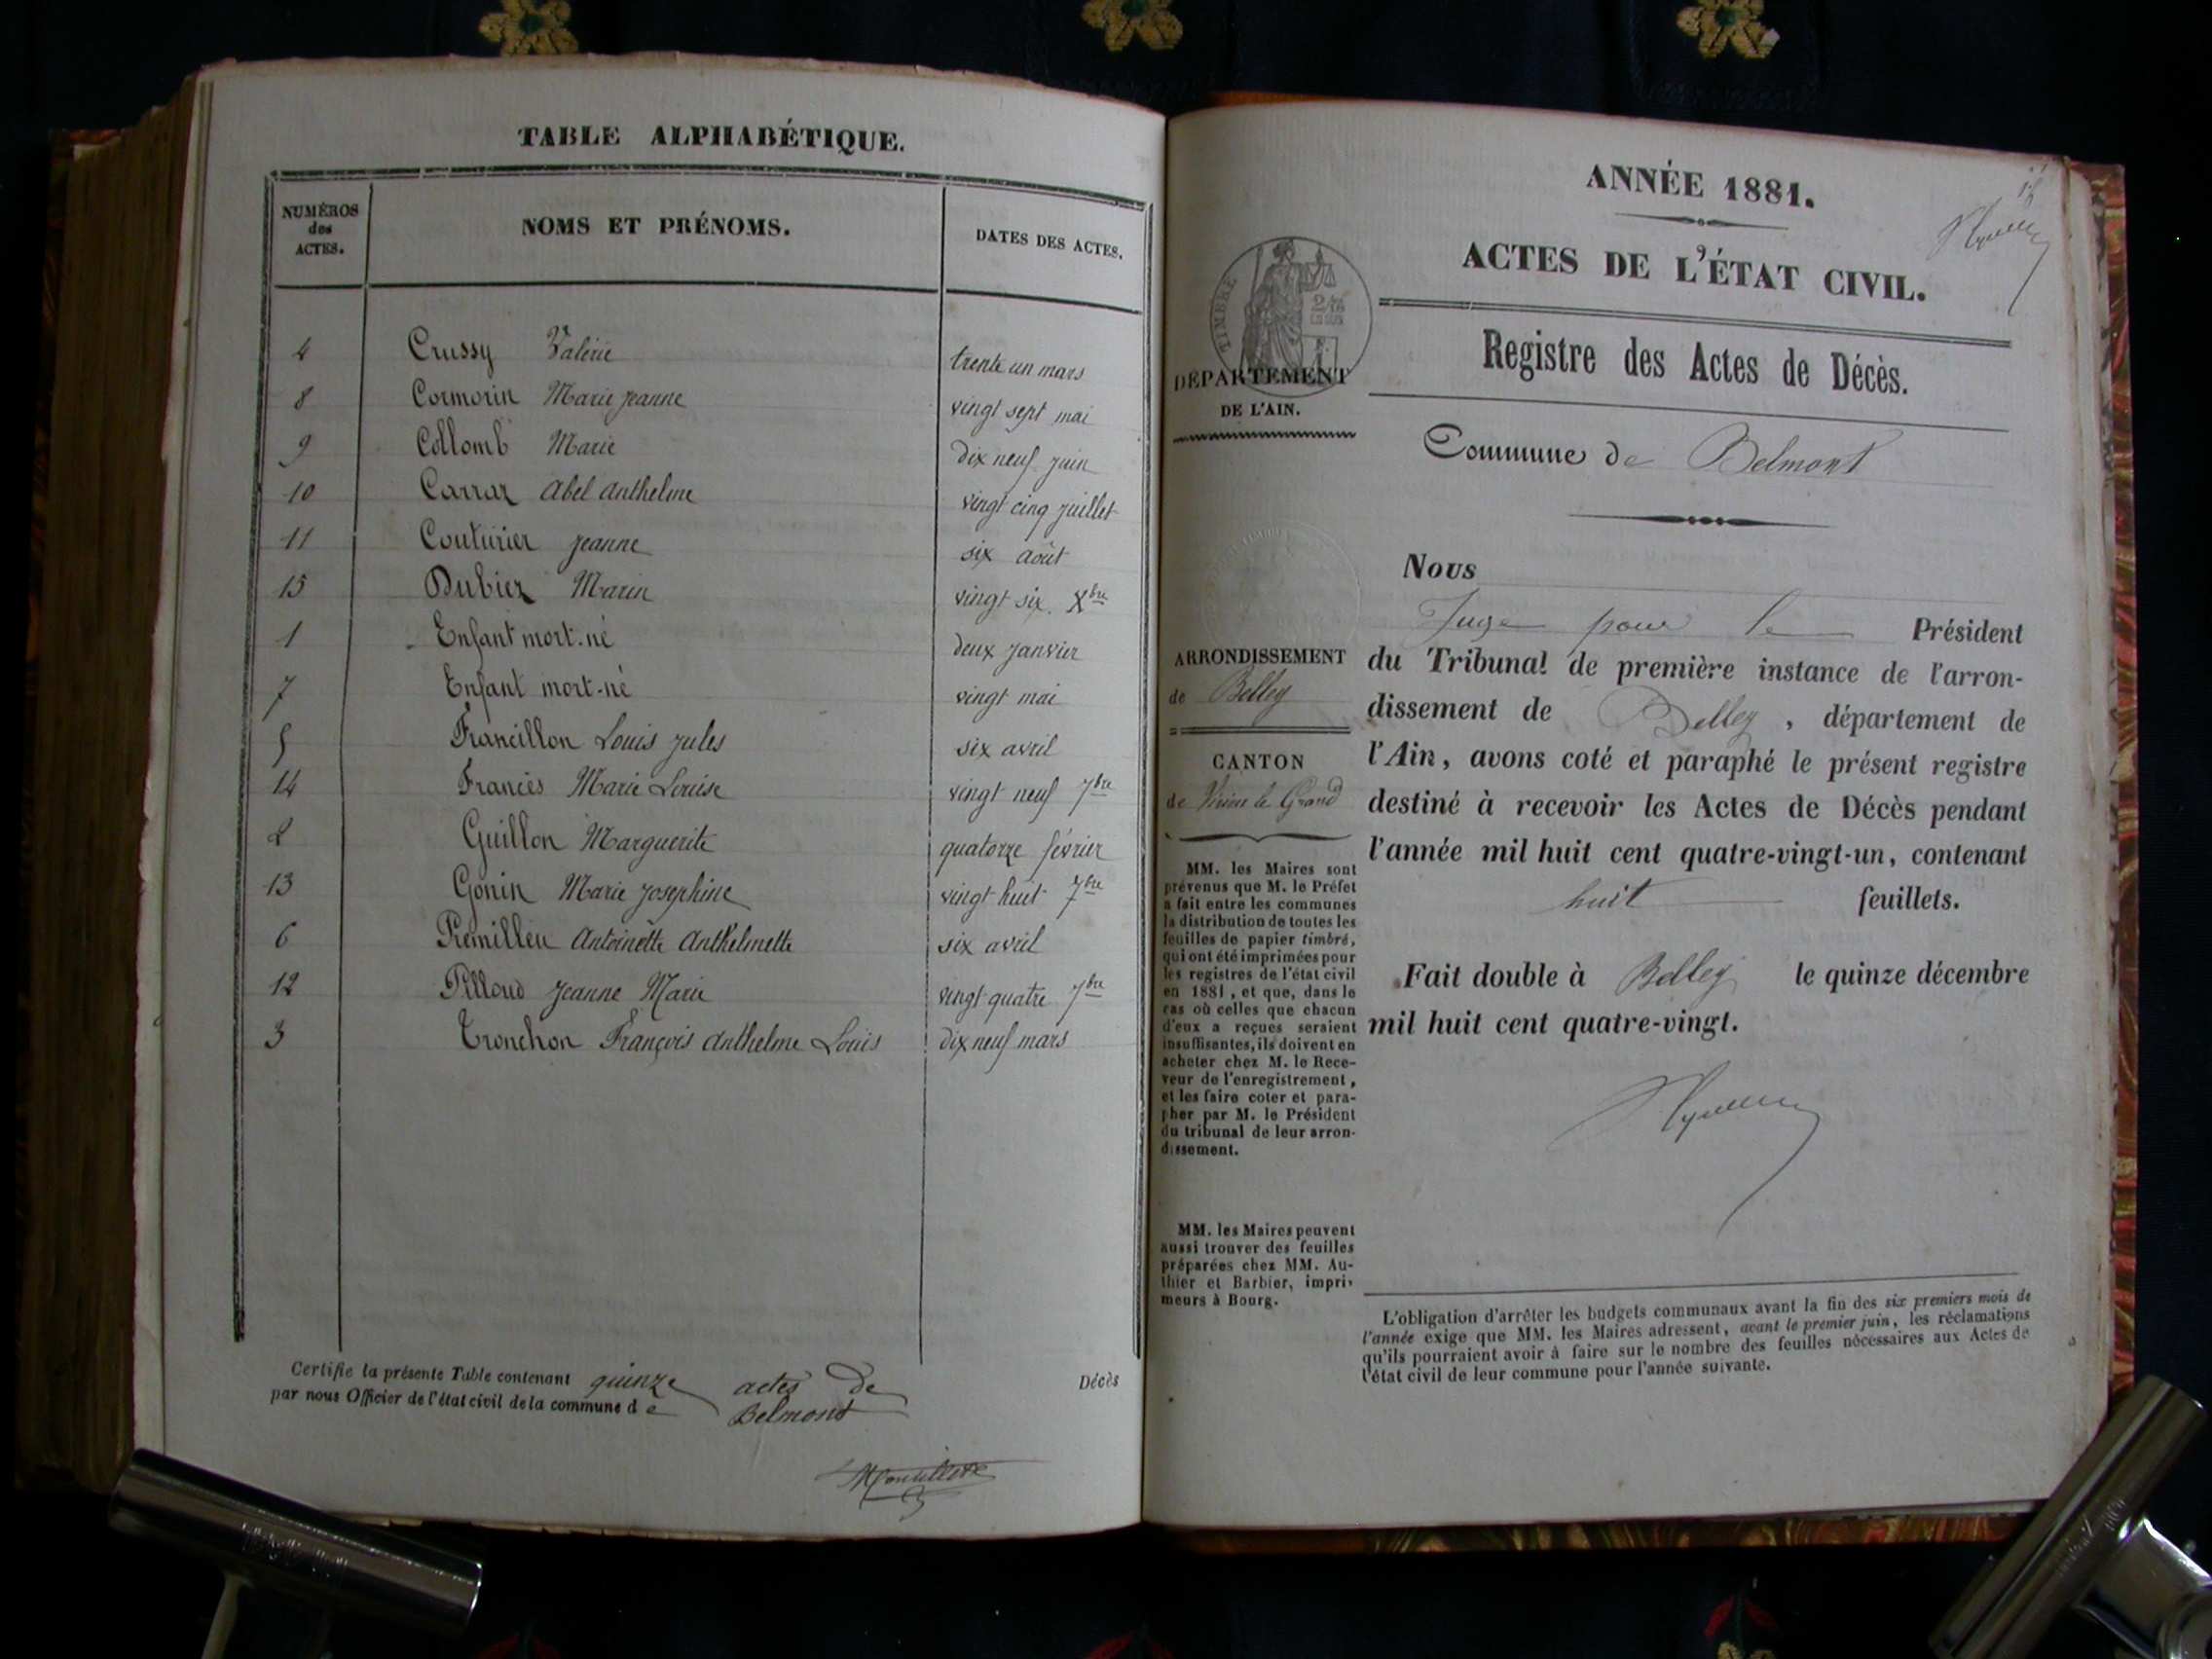 TABLE ALPHABÉTIQUE.
NUMÉROS des ACTES. NOMS ET PRÉNOMS. DATES DES ACTES.
4 Crussy Valérie trente un mars
8 Cormorin Marie Jeanne vingt sept mai
9 Collomb Marie dix neuf juin
10 Carraz Abel Anthelme vingt cinq juillet
11 Couturier Jeanne six août
15 Dubiez Marin vingt six Xbre
1 Enfant mort-né deux janvier
7 Enfant mort-né vingt mai
5 Francillon Louis Jules six avril
14 Francès Marie Louise vingt neuf 7bre
2 Guillon Marguerite quatorze février
13 Gonin Marie Josephine vingt huit 7bre
6 Premilleu Antoinette Anthelmette six avril
12 Pilloud Jeanne Marie vingt quatre 7bre
3 Tronchon François Anthelme Louis dix neuf mars
Certifie la présente Table contenant quinze actes de Décès
par nous Officier de l'état civil de la commune de Belmont
ANNÉE 1881.
ACTES DE L'ÉTAT CIVIL.
TIMBRE
DÉPARTEMENT
DE L'AIN.
Registre des Actes de Décès.
Commune de Belmont
ARRONDISSEMENT
de Belley
CANTON
de Virieu le Grand
MM. les Maires sont
prévenus que M. le Préfet
a fait entre les communes
la distribution de toutes les
feuilles de papier timbré,
qui ont été imprimées pour
les registres de l'état civil
en 1881, et que, dans le
cas où celles que chacun
d'eux a reçues seraient
insuffisantes, ils doivent en
acheter chez M. le Rece-
veur de l'enregistrement,
et les faire coter et para-
pher par M. le Président
du tribunal de leur arron-
dissement.
MM. les Maires peuvent
aussi trouver des feuilles
préparées chez MM. Au-
thier et Barbier, impri-
meurs à Bourg.
Nous
Juge pour le Président
du Tribunal de première instance de l'arron-
dissement de Belley, département de
l'Ain, avons coté et paraphé le présent registre
destiné à recevoir les Actes de Décès pendant
l'année mil huit cent quatre-vingt-un, contenant
huit feuillets.
Fait double à Belley le quinze décembre
mil huit cent quatre-vingt.
L'obligation d'arrêter les budgets communaux avant la fin des six premiers mois de
l'année exige que MM. les Maires adressent, avant le premier juin, les réclamations
qu'ils pourraient avoir à faire sur le nombre des feuilles nécessaires aux Actes de
l'état civil de leur commune pour l'année suivante.